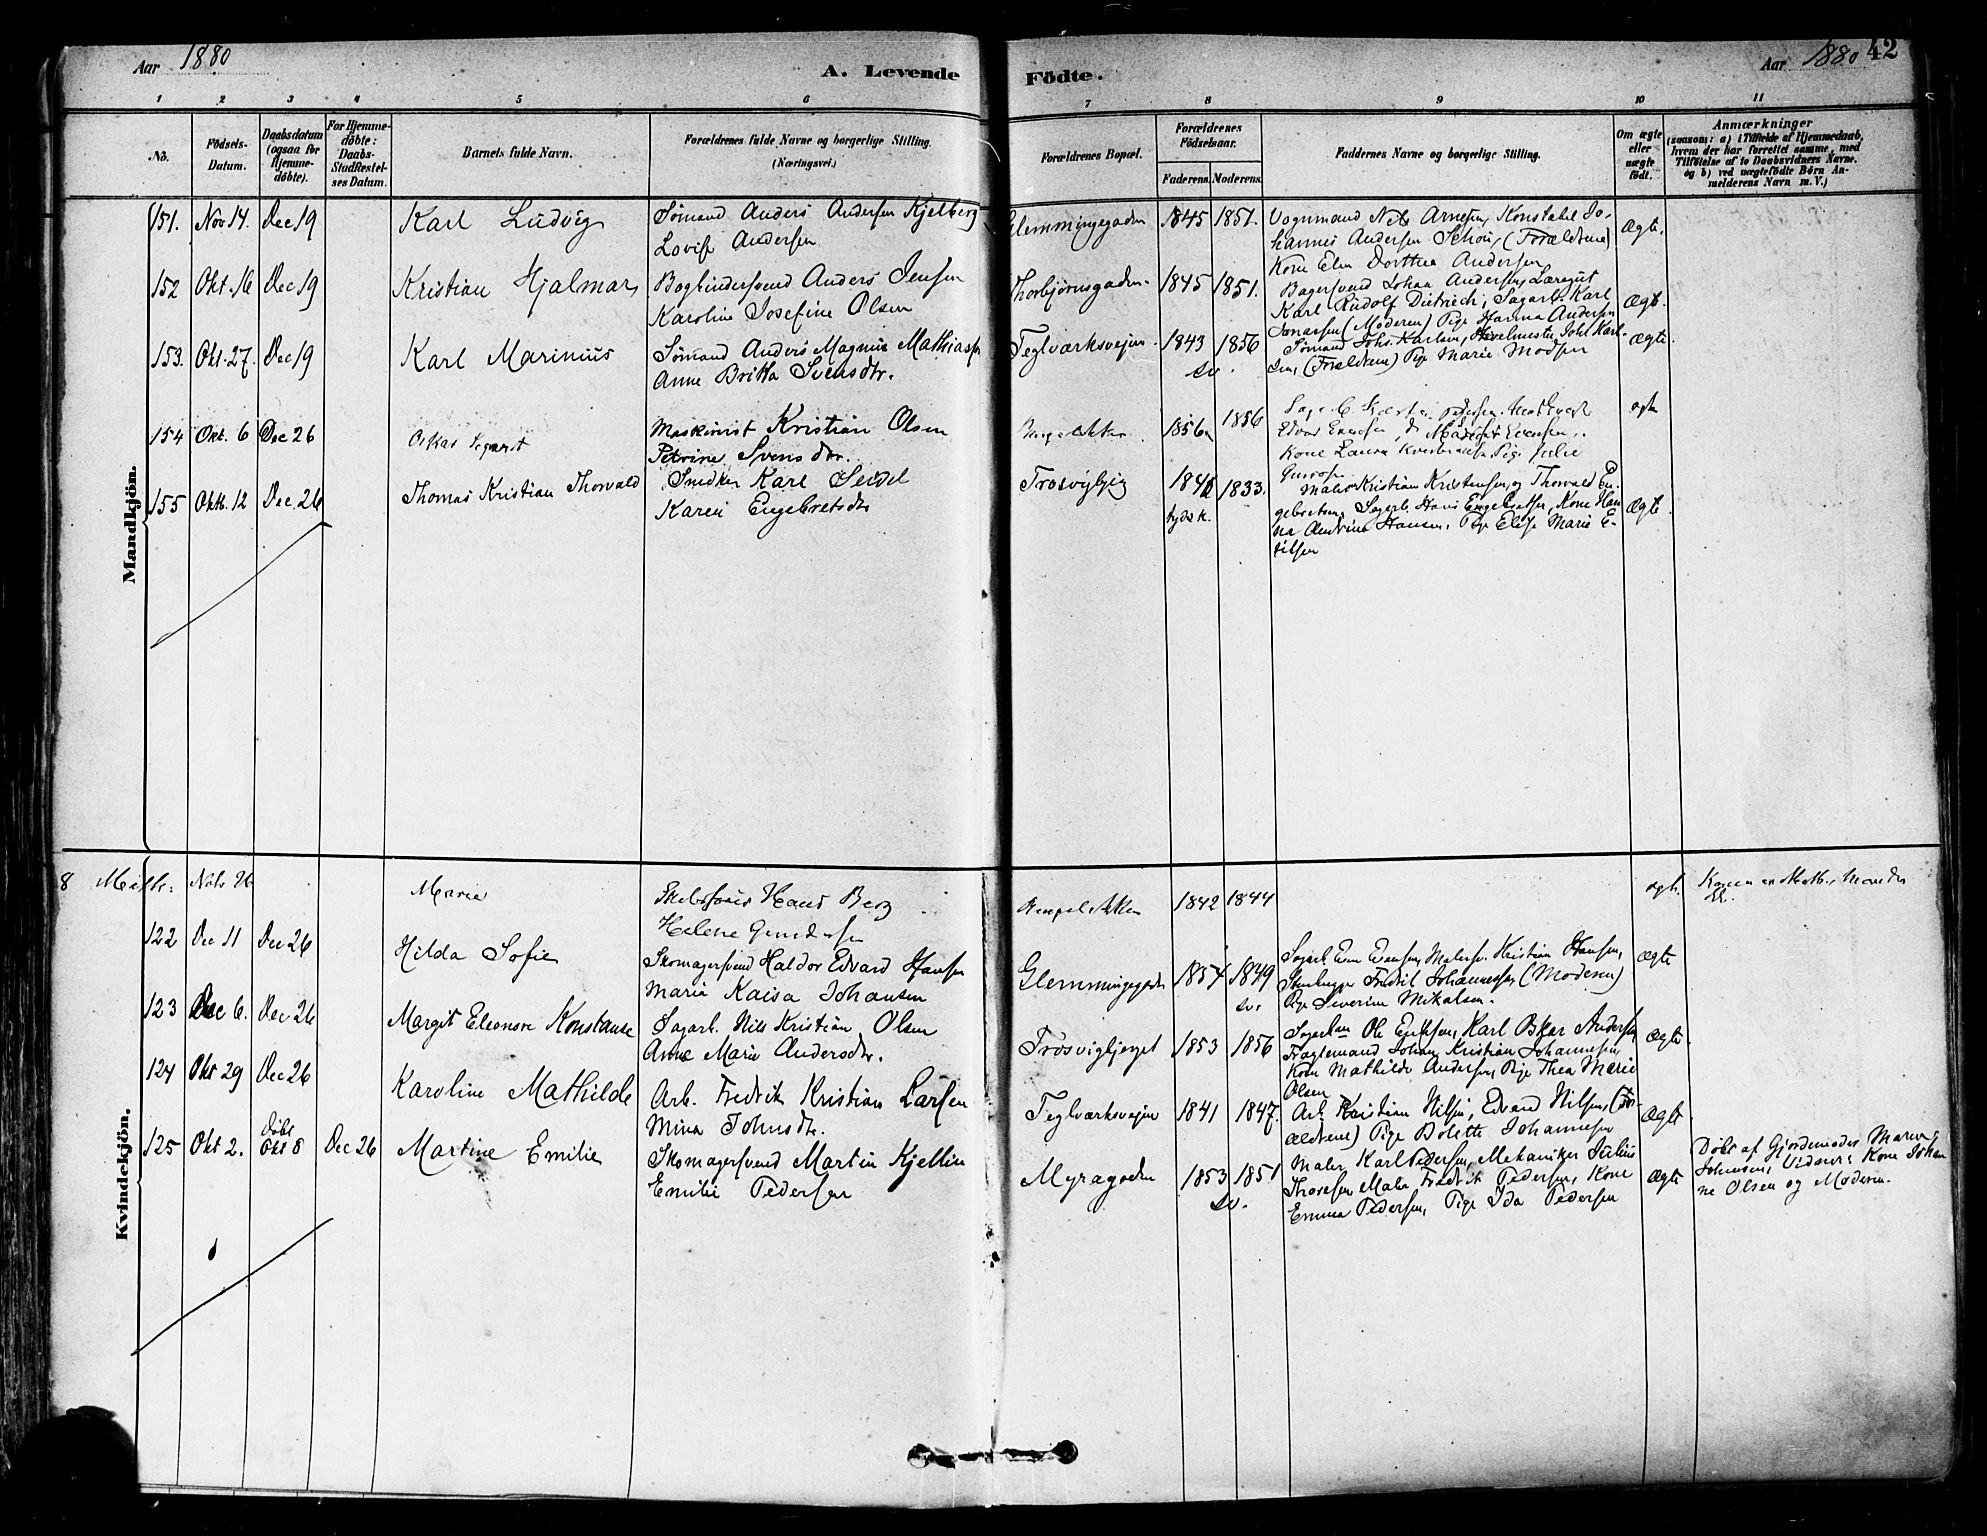 Aar 1880
A. Levende Födte.
Aar 1880 42
1 2 3 4 5 6 7 8 9 10 11
No.
Födsels-Datum.
Daabsdatum (ogsaa for Hjemme-döbte).
For Hjemme-döbte: Daabs-Stadfæstel-ses Datum.
Barnets fulde Navn.
Forældrenes fulde Navne og borgerlige Stilling. (Næringsvei.)
Forældrenes Bopæl.
Forældrenes Födselsaar.
Faderens. Moderens.
Faddernes Navne og borgerlige Stilling.
Om ægte eller uægte födt.
Anmærkninger
(saasom: a) i Tilfælde af Hjemmedaab,
hvem der har forrettet samme, med
Tilföielse af to Daabsvidners Navne.
og b) ved uægtefödte Börn An-
melderens Navn m. V.)
Mandkjön.
151. Nov 14. Dec 19 Karl Ludvig
Sømand Anders Andersen Kjelberg
Lovise Andersen
Glemmingegaden 1845 1851.
Vognmand Nils Arnesen, Konstabel Jo-
hannes Andersen Schou, (Forældrene)
Kone Elen Dorthea Andersen
Ægte.
152 Okt. 16 Dec 19 Kristian Hjalmar
Bogbindersvend Anders Jensen
Karoline Josefine Olsen
Thorbjørnsgaden. 1845 1851.
Bagersvend Johan Andersen, Læregut
Karl Rudolf Dietrich, Sagarb. Karl
Jonassen (Moderen) Pige Hanna Andersen
Ægte.
153. Okt. 27. Dec 19 Karl Marinius
Sømand Anders Magnus Mathiassen
Anne Britta Svensdtr.
Teglværksveien. 1843 1856
sv.
Sømand Johs. Karlsen, Johs Karl-
sen, (Forældrene) Pige Marie Madsen
Ægte.
154 Okt. 6 Dec 26 Oskar Sigvart
Maskinist Kristian Olsen
Petrine Svensdtr.
1856 1856
Kone Laura Pige Julie
ægte
155 Oktb. 12 Dec 26 Thomas Kristian Thorvald
Snedker Karl Seidel
Karen Engebretsdtr
Trosvigbjerg 1833.
tydsk.
Maler Kristian Kristensen, og Thorvald En-
gebretsen, Sagarb. Hans Engebretsen, Kone Han-
na Andrine Hansen, Pige Elise Marie E-
rilsen
Ægte.
Kvindekjön.
8 Meth: Nov 26 Marie
Hans Berg
Helene Gundersen
1842 1844
ægte
Konen er Meth., Manden
122 Dec 11 Dec 26 Hilda Sofie
Skomagersvend Haldor Edvard Hansen
Maria Kaisa Johansen
Glemmingegaden 1854 1849
sv.
Sagarb. Even Evensen, Malersv. Kristian Hansen,
Stenhugger Fredrik Johannessen (Moderen)
Pige Severine Mikalsen.
Ægte
123 Dec 6. Dec 26 Margit Eleonore Konstanse
Sagarb. Nils Kristian Olsen
Anne Marie Andersdtr.
Trosvigbjerget 1853 1856
Ole Eriksen, Karl Oskar Andersen
Fragtemand Johan Kristian Johannesen,
Kone Mathilde Andersen, Pige Thea Marie
Olsen
Ægte.
124 Okt 29 Dec 26 Karoline Mathilde
Arb. Fredrik Kristian Larsen
Mina Johnsdtr.
Teglværksveien 1841 1847.
Arb. Kristian Nilsen, Edvard Nilsen, (For-
ældrene) Pige Bolette Johannesen
Ægte
125 Okt 2. Døbt Okt 8 Dec 26 Martine Emilie
Skomagersvend Martin Kjellin
Emilie Pedersen
Myragaden 1853 1851
sv.
Maler Karl Pedersen, Mekaniker Julius
Thoresen, Maler Fredrik Pedersen, Kone
Emma Pedersen, Pige Ida Pedersen
Ægte
Døbt af Gjordemoder Maren
Johnsen, Vidner: Kone Johan
ne Olsen og Moderen.